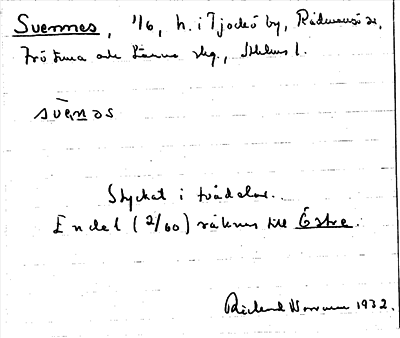 Svennes, 1/6, h. i Tjockö by, Rådmansö sn,
Frötuna och Länna skg., Sthlms l.
svenəs
Styckat i två delar.
En del (2/60) räknas till Östra.
Rickard Broberg 1932.